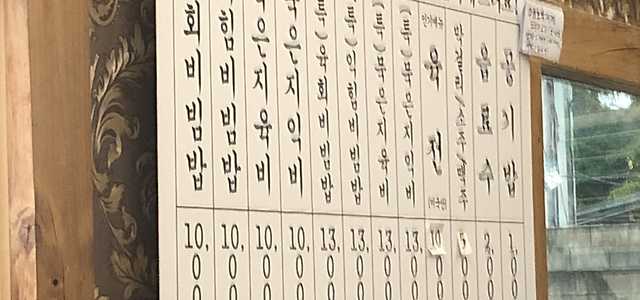 회비빔밥 10,00
힘비빔밥 10,00
은지육비 10,00
은지익비 10,00
특)육회비빔밥 13,00
특)익힘비빔밥 13,00
(특)묵은지육비 13,00
(특)묵은지익비 13,00
인기메뉴 육전 10,00
막걸리/소주/맥주 00
음료수 2,00
공기밥 1,00